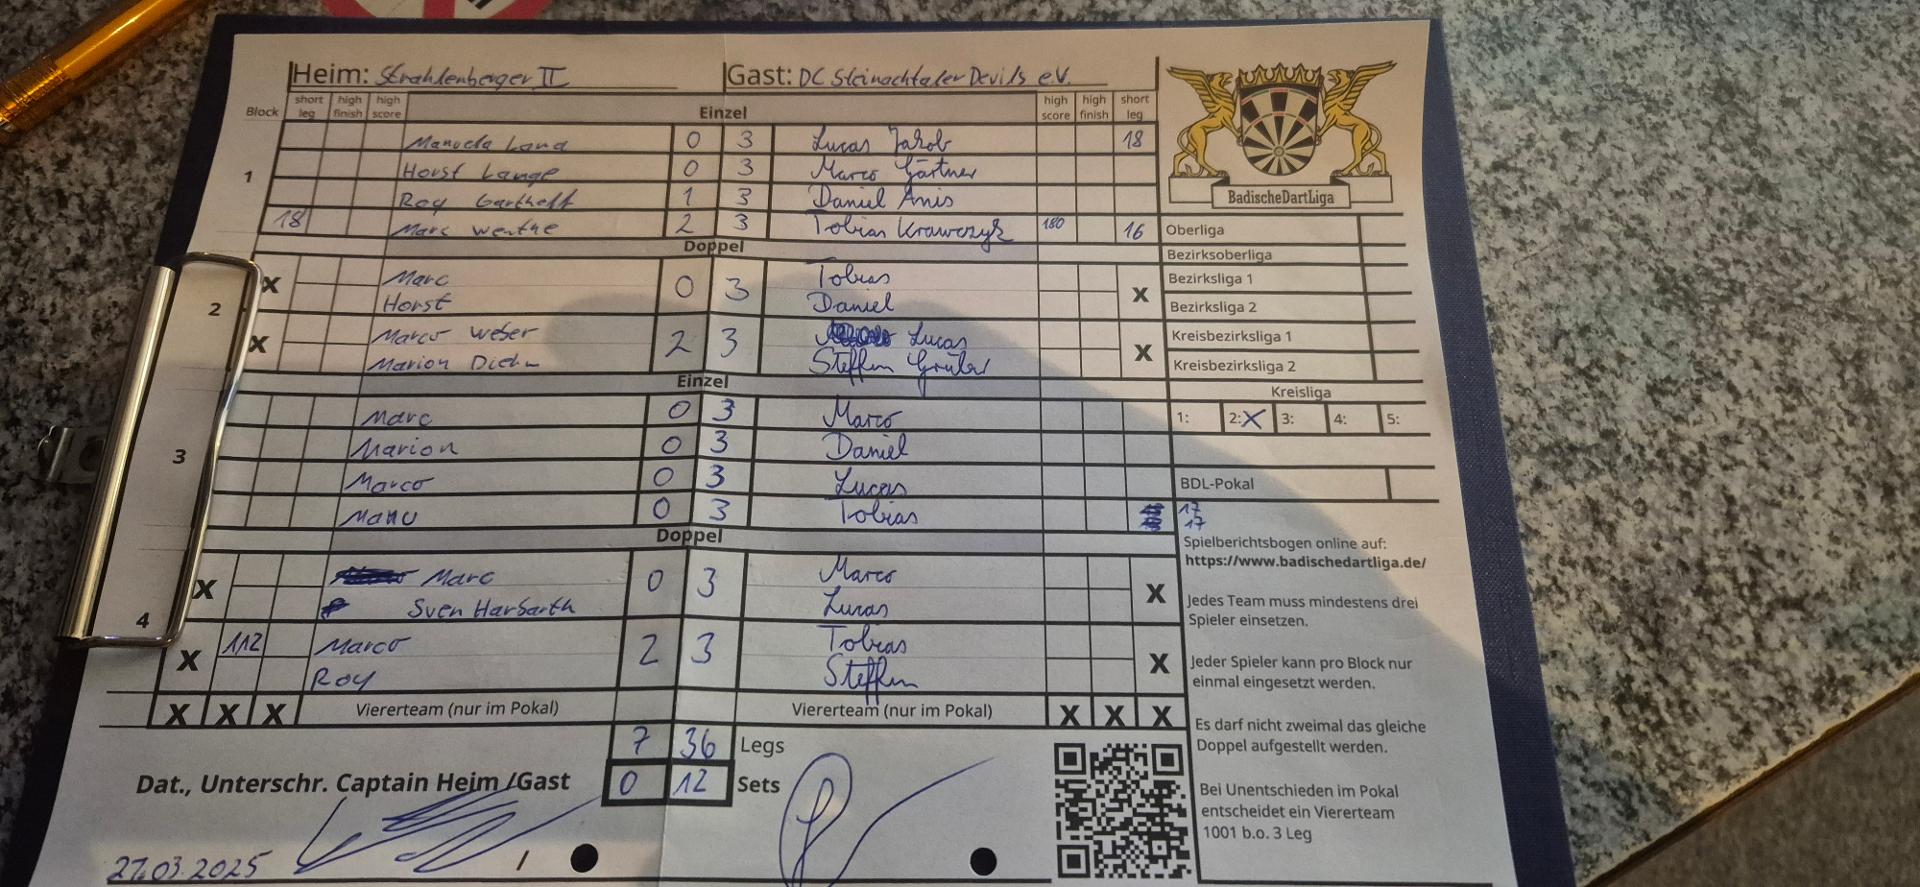 Heim: Strahlenberger II Gast: DC Steinachtaler Devils e.V.
Block short leg high finish high score Einzel high score high finish short leg
Manuela Land 0 3 Lucas Jakob 18
1 Horst Lange 0 3 Marco Gärtner
Roy Garthoff 1 3 Daniel Anis
18 Marc Wenthe 2 3 Tobias Krawczyk 180 16
Doppel
2
X Marc 0 3 Tobias X
Horst Daniel
X Marco Weber 2 3 Lucas X
Marion Diehm Steffen Grüber
Einzel
3
Marc 0 3 Marco
Marion 0 3 Daniel
Marco 0 3 Lucas
Manu 0 3 Tobias 17
17
Doppel
4
X Marc 0 3 Marco X
Sven Harbarth Lucas
X 112 Marco 2 3 Tobias X
Roy Steffen
X X X Viererteam (nur im Pokal) Viererteam (nur im Pokal) X X X
7 36 Legs
Dat., Unterschr. Captain Heim /Gast 0 12 Sets
27.03.2025 /
BadischeDartLiga
Oberliga
Bezirksoberliga
Bezirksliga 1
Bezirksliga 2
Kreisbezirksliga 1
Kreisbezirksliga 2
Kreisliga
1: 2: X 3: 4: 5:
BDL-Pokal
Spielberichtsbogen online auf:
https://www.badischedartliga.de/
Jedes Team muss mindestens drei
Spieler einsetzen.
Jeder Spieler kann pro Block nur
einmal eingesetzt werden.
Es darf nicht zweimal das gleiche
Doppel aufgestellt werden.
Bei Unentschieden im Pokal
entscheidet ein Viererteam
1001 b.o. 3 Leg